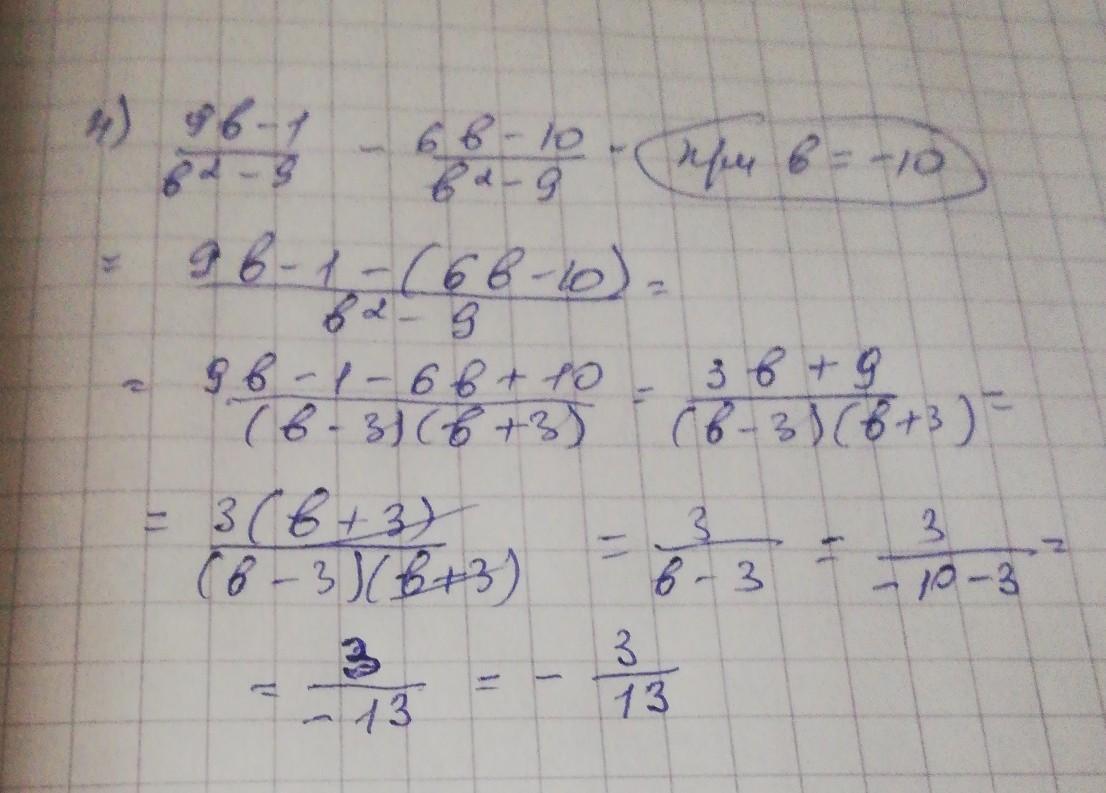 4) (9в-1)/(в²-9) - (6в-10)/(в²-9) - при в = -10
= (9в-1-(6в-10))/(в²-9) =
= (9в-1-6в+10)/((в-3)(в+3)) = (3в+9)/((в-3)(в+3)) =
= (3(в+3))/((в-3)(в+3)) = 3/(в-3) = 3/(-10-3) =
= 3/(-13) = - 3/13